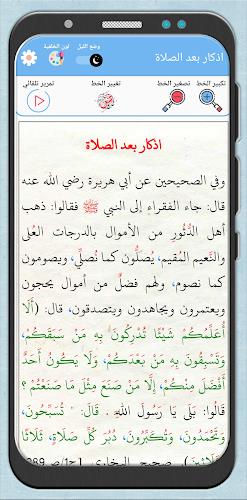 اذكار بعد الصلاة
وضع الليل
لون الخلفية
تكبير الخط
تصغير الخط
تغيير الخط
تمرير تلقائي
اذكار بعد الصلاة
وفي الصحيحين عن أبي هريرة رضي الله عنه
قال: جاء الفقراء إلى النبي ﷺ فقالوا: ذهب
أهل الدُّثُورِ من الأموال بالدرجات العُلى
والنَّعيم المُقيم، يُصَلُّون كما نُصلِّي، ويصومون
كما نصوم، ولهم فضلٌ من أموال يحجون
ويعتمرون ويجاهدون ويتصدقون، قال: (أَلَا
أُعَلِّمُكُمْ شَيْئًا تُدْرِكُونَ بِهِ مَنْ سَبَقَكُمْ،
وَتَسْبِقُونَ بِهِ مَنْ بَعْدَكُمْ، وَلَا يَكُونُ أَحَدٌ
أَفْضَلَ مِنْكُمْ، إِلَّا مَنْ صَنَعَ مِثْلَ مَا صَنَعْتُمْ ؟
قَالُوا: بَلَى يَا رَسُولَ اللهِ . قَالَ: " تُسَبِّحُونَ،
وَتَحْمَدُونَ، وَتُكَبِّرُونَ، دُبُرَ كُلِّ صَلَاةٍ، ثَلَاثًا
صحيح البخاري